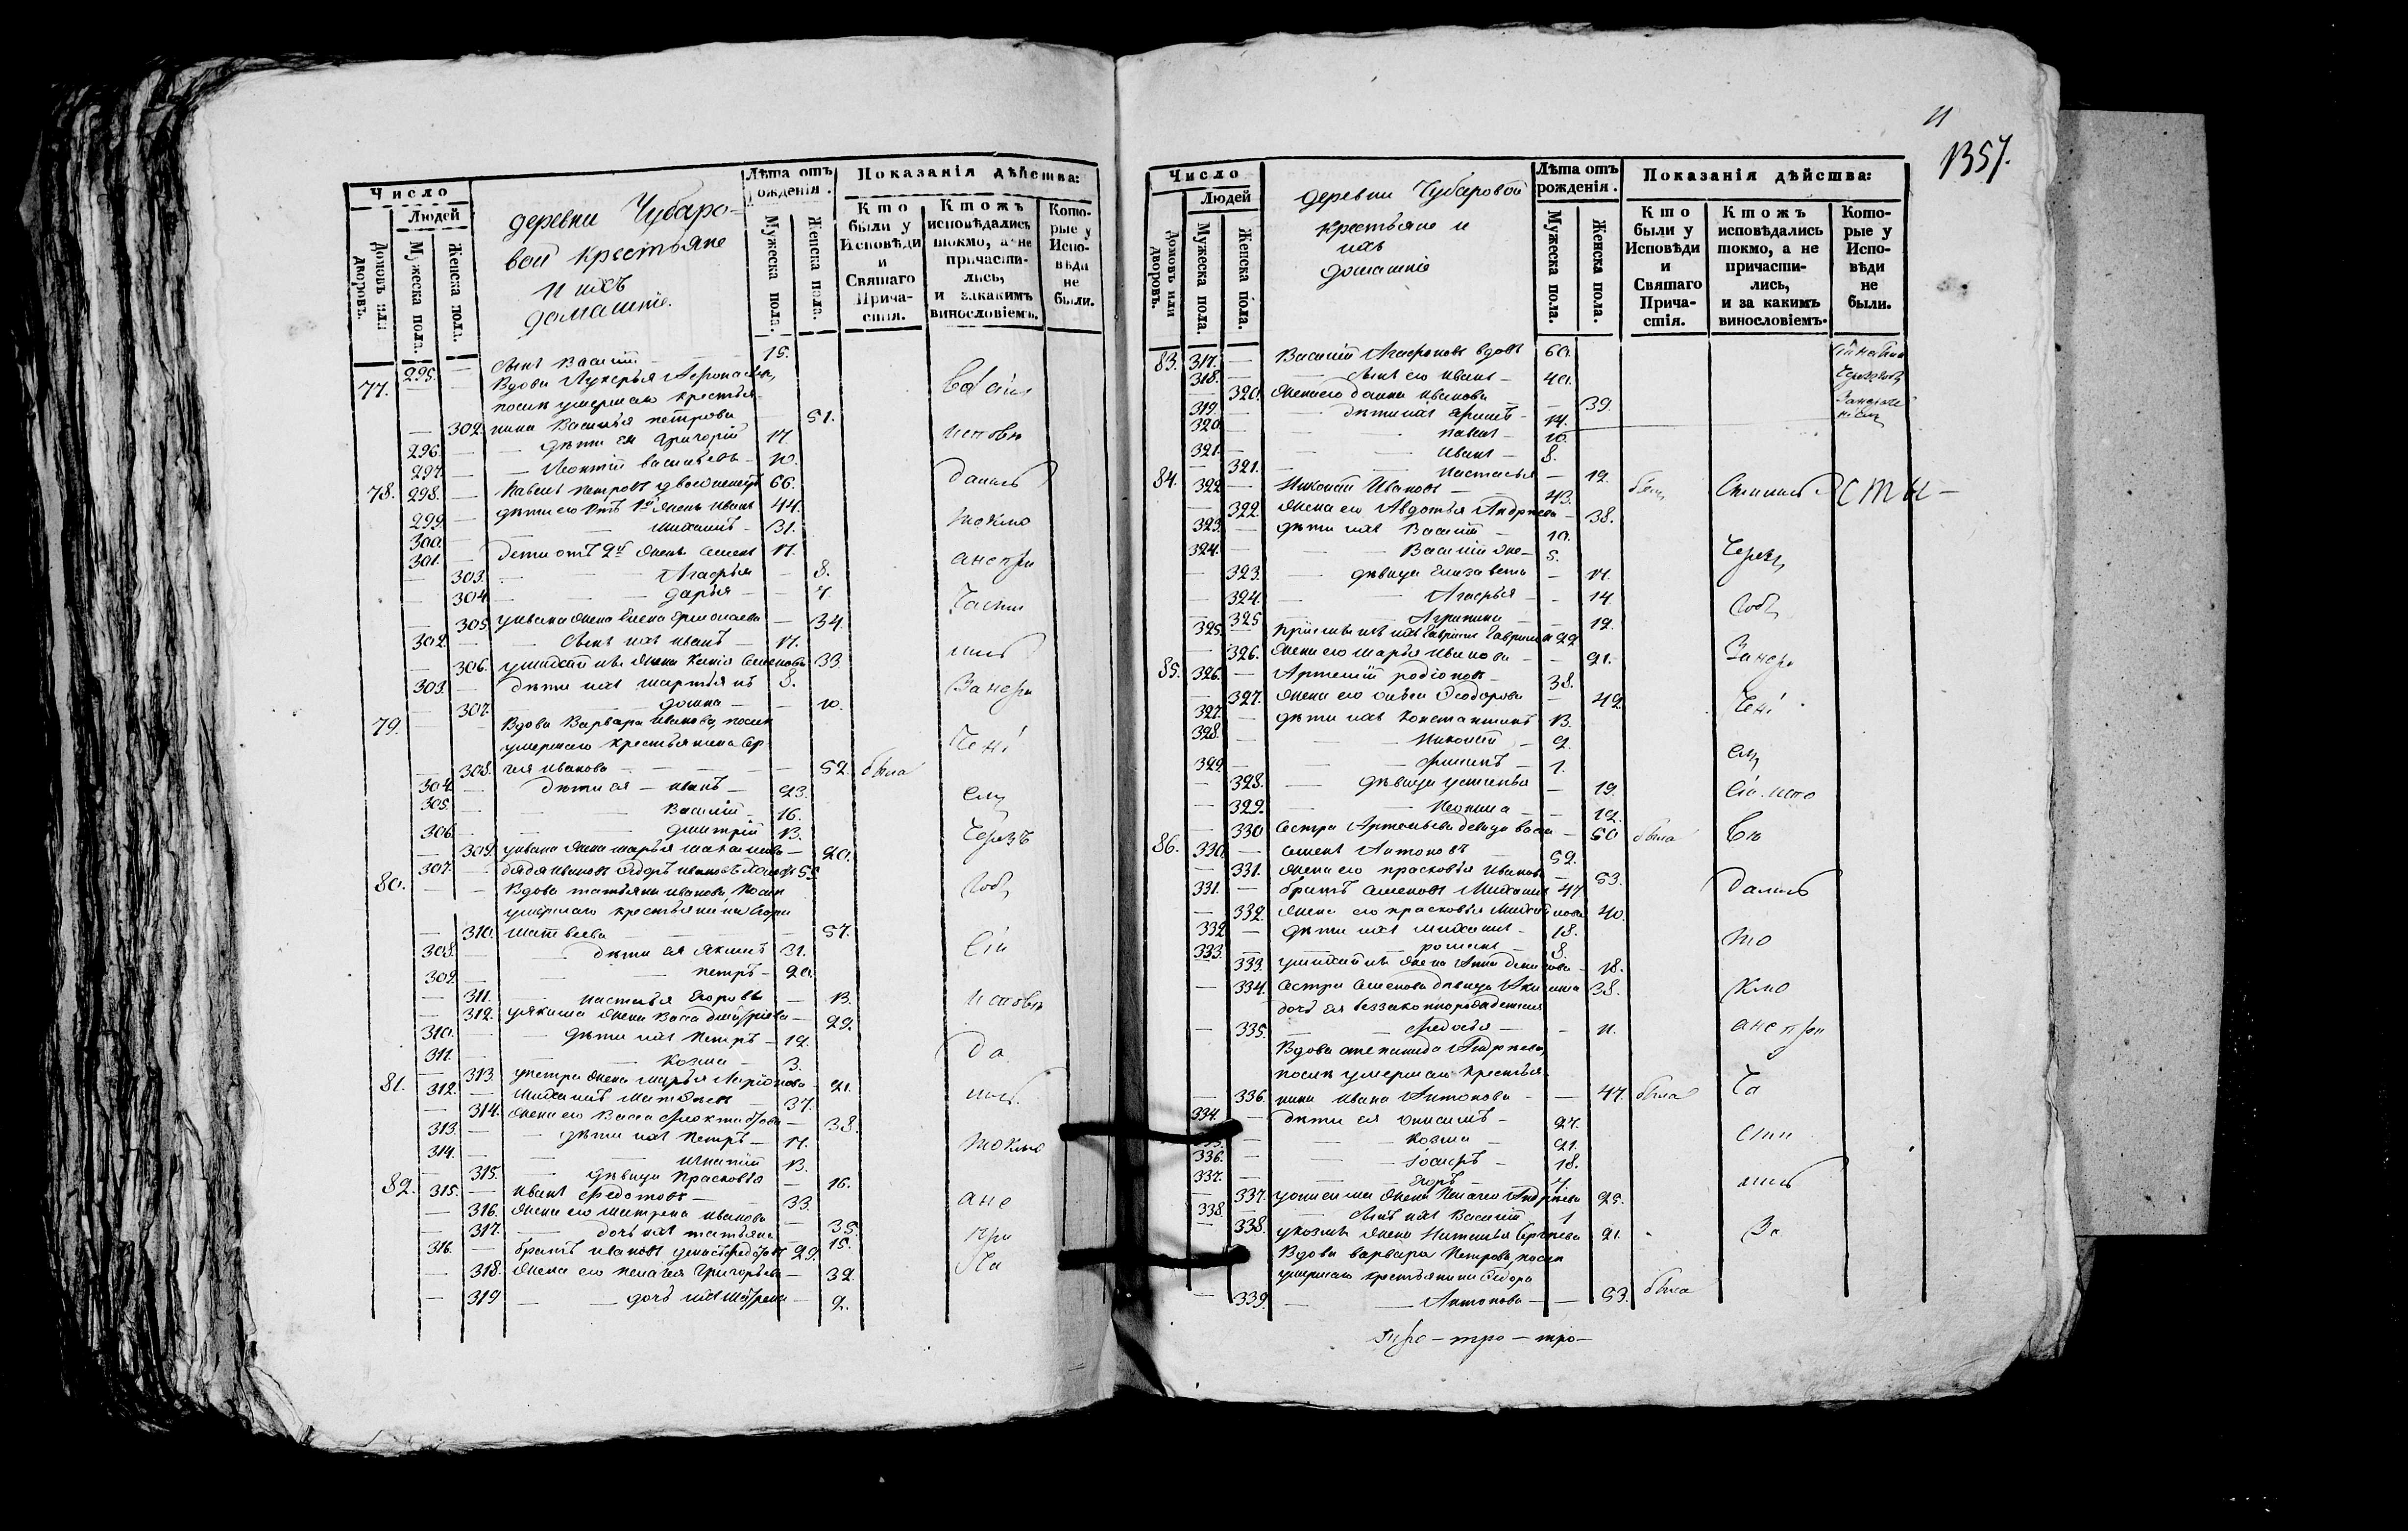 Число
Людей
Домовъ или дворовъ.
Мужеска пола.
Женска пола.
деревни Чубаро-
вой крестьяне
и ихъ
домашніе.
Лѣта отъ рожденія.
Мужеска пола.
Женска пола.
Показанія дѣйства:
Кто были у Исповѣди и Святаго Прича-стія.
Ктожъ исповѣдались токмо, а не причасти-лись, и за какимъ винословіемъ.
Кото-рые у Испо-вѣди не были.
295. — сынъ Василій — 15.
77. — Вдова Лукерья
послѣ умершаго крестья-
302. нина Василья Петрова — 51.
296. — дѣти ея Григорій 17.
297. — Леонтій Васильевъ — 10.
78. 298. — Павелъ Петровъ 66.
299. — дѣти его отъ 1й жены Иванъ 44.
300. — Михаилъ — 31.
301. — дети отъ 2й жены Семенъ 17.
303. — Агафья — 8.
304. — Дарья — 7.
305. у Ивана жена Елена Ермолаева — 34.
302. — сынъ ихъ Иванъ — 17.
306. у Михайлы жена 33
303. — дѣти ихъ Мартынъ 8.
307. — Домна — 10.
79. — Вдова Варвара Иванова, послѣ
умершаго крестьянина Сер-
308. гея Иванова — 52. была
304. — дѣти ея — Иванъ — 23.
305. — Василій — 16.
306. — Дмитрій 13.
309. у Ивана жена Марья — 20.
307. — дядя Ивановъ Ѳедоръ Ивановъ 55
80. — Вдова Татьяна Иванова, послѣ
умершаго крестьянина Егора
310. Матвеева — 57.
308. — дѣти ея Якимъ 31.
309. — Петръ — 20.
311. — Настасья Егорова — 13.
312. у Якима жена Васса Дмитріева — 29.
310. — дѣти ихъ Петръ — 12.
311. — Козма — 3.
313. у Петра жена Марья Ларіонова — 21.
81. 312. — Михаилъ Матвѣевъ — 37.
314. жена его Васса — 38.
313. — дѣти ихъ Петръ — 17.
314. — Игнатій 13.
315. — дѣвица Прасковья — 16.
82. 315. — Иванъ Федотовъ — 33.
316. жена его Матрена Иванова — 35.
317. — дочь ихъ Татьяна — 15.
316. — братъ Ивановъ 29.
318. жена его Пелагея Григорьева — 32.
319 — дочь ихъ Матрена — 2.
исповѣ
дались
токмо
а не при
части
лись
за нера
чені
ем
чрезъ
год
сіи
исповѣ
да
лись
токмо
а не
при
ча
11
1357.
Число
Людей
Домовъ или дворовъ.
Мужеска пола.
Женска пола.
деревни Чубаровой
крестьяне и
ихъ
домашніе
Лѣта отъ рожденія.
Мужеска пола.
Женска пола.
Показанія дѣйства:
Кто были у Исповѣди и Святаго Прича-стія.
Ктожъ исповѣдались токмо, а не причасти-лись, и за какимъ винословіемъ.
Кото-рые у Испо-вѣди не были.
83. 317. — Василій Агафоновъ вдовъ 60.
318. — сынъ его Иванъ — 40.
320. жена его Домна Иванова — 39.
319. — дѣти ихъ — 14.
320. — Павелъ — 10.
321. — Иванъ — 8.
321. — Настасья — 12.
84. 322 — Николай Ивановъ — 43.
322. жена его Авдотья Андреева — 38.
323. — дѣти ихъ Василій — 10.
324. — Василій же — 5.
323. — дѣвица Елизавета — 17.
324. — Агафья — 14.
325 — Агрипина — 12.
325. 22
326. жена его Марья Иванова — 21.
85. 326. — Артемій Родіоновъ — 38.
327. жена его Ѳеодорова — 42.
327. — дѣти ихъ Константинъ 13.
328. — Николай — 9.
329. — Филипъ — 1.
328. — дѣвица Устинья — 19.
329. — 12.
330 сестра Артемьева девица Васса — 50 была
86. 330. — Семенъ Антоновъ — 52.
331. жена его Прасковья Иванова — 53.
331. — братъ Семеновъ Михаилъ 47
332. жена его Прасковья 40.
332 — дѣти ихъ Михаилъ — 18.
333. — Романъ — 8.
333. у Михайлы жена Анна 18.
334. сестра Семенова дѣвица Акилина 38.
дочь ея беззаконнорожденная
335. — Федосья — 11.
Вдова Степанида Андреева,
послѣ умершаго крестья-
336. нина Ивана Антонова — 47. была
334. — дѣти ея Онисимъ — 27.
— Козма — 21.
336. — Іосифъ — 18.
337. — Егоръ — 7.
337. у Онисима жена Пелагея Андреева 25.
338. — сынъ ихъ Василій 1
338. у Козмы жена Наталья Сергеева 21.
Вдова Варвара Петрова, послѣ
умершаго крестьянина Ѳедора
339. — Антонова — 53. была
чрезъ
год
за нера
чені
ем
сіи испо
вѣ
дались
то
кмо
а не при
ча
сти
лись
за